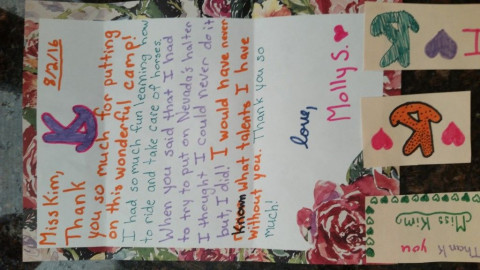 8/2/16
Miss Kim,
Thank
you so much for putting
on this wonderful camp!
I had so much fun learning how
to ride and take care of horses.
When you said that I had
to try to put on Nevada's halter
I thought I could never do it
but, I did! I would have never
known what talents I have
without you. Thank you so
much!
love,
Molly S.
K
I
K
K
Miss Kim,
Thank you